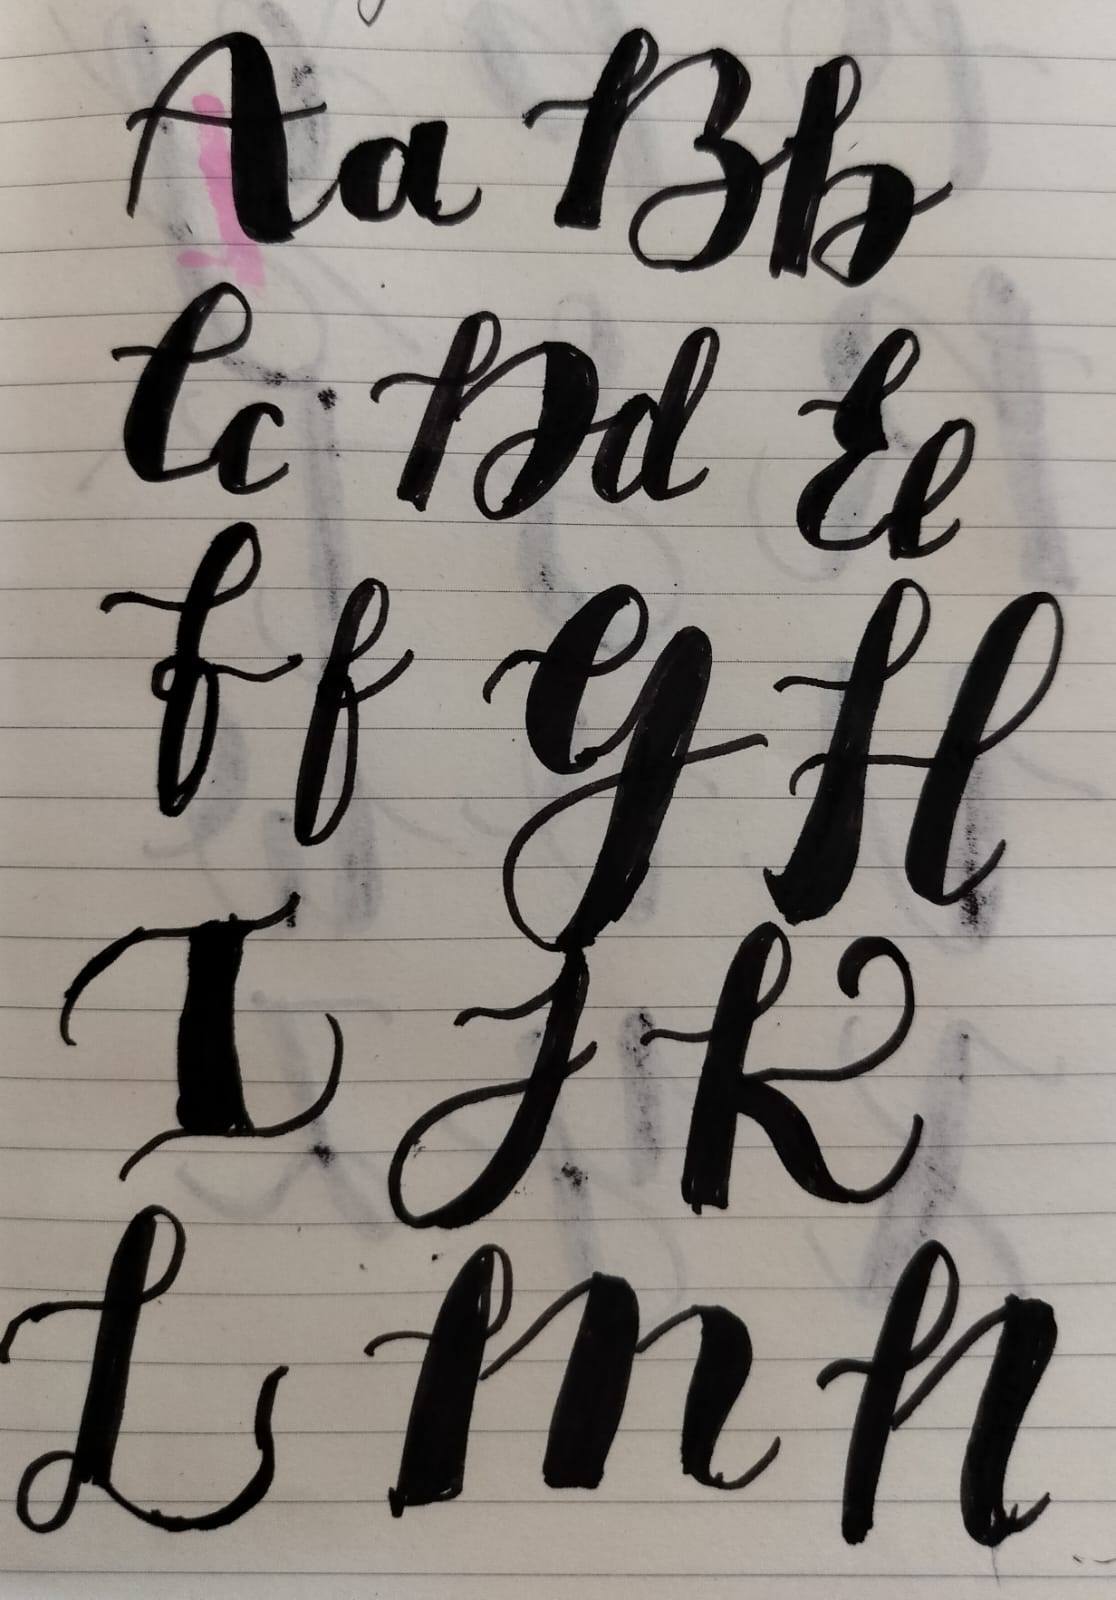 Aa Bb
Cc Dd Ee
Ff G H
I J K
L M N